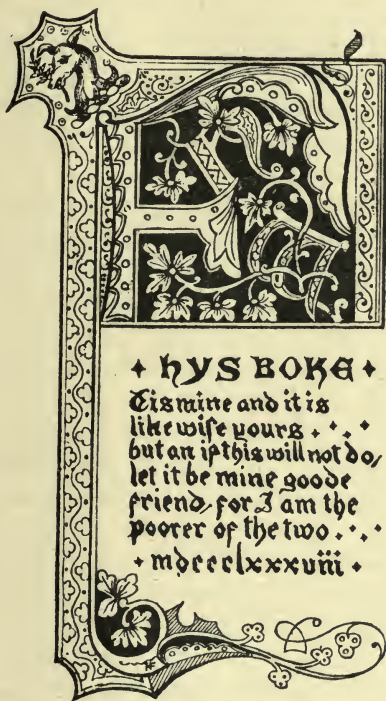 hYS BOKE
Tis mine and it is
like wise yours . · . ·
but an if this will not do,
let it be mine goode
friend, for I am the
poorer of the two . · . ·
mdccclxxxviii